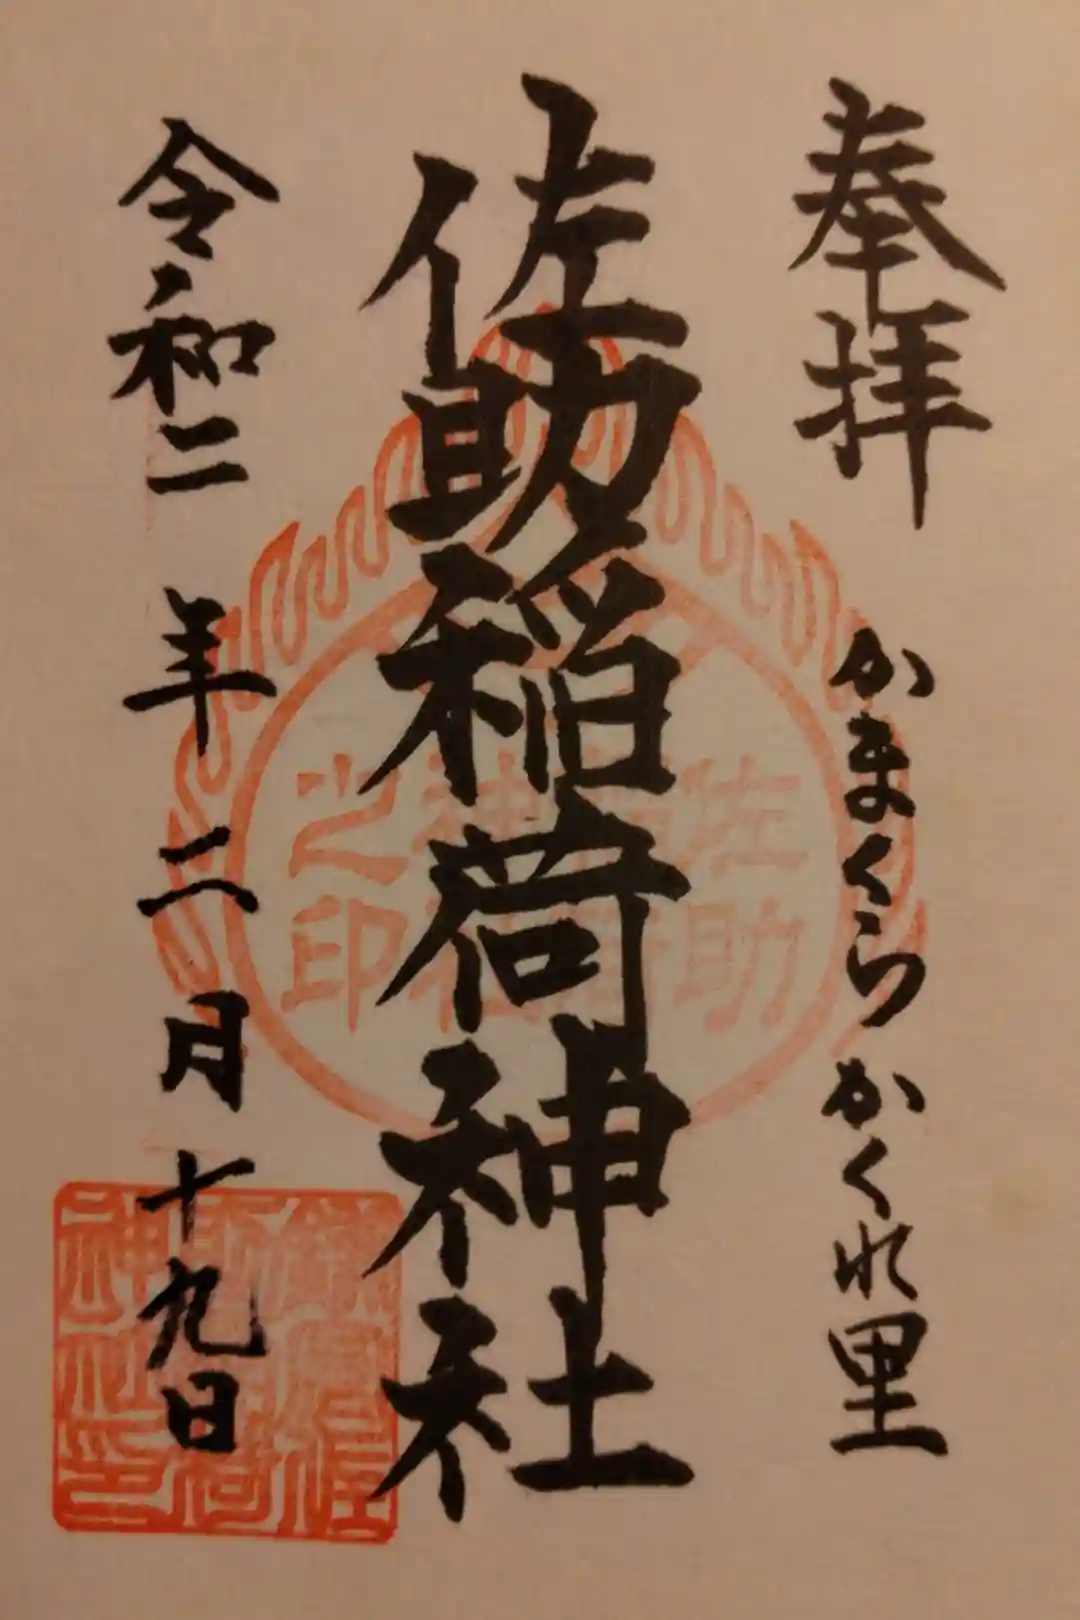 奉拝
かまくらかくれ里
佐助稲荷神社
令和二年二月十九日
佐助
之印